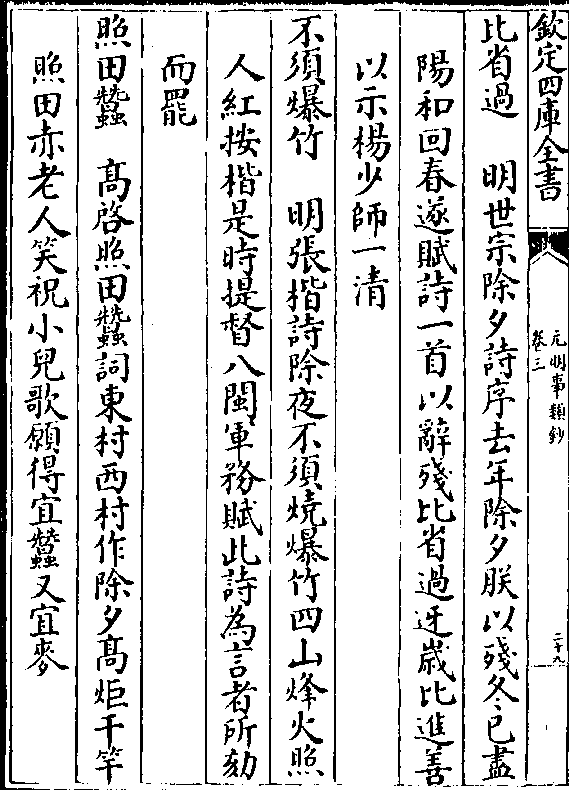 欽定四庫全書
元明事類鈔
卷三
二十九
比省過　明世宗除夕詩序去年除夕朕以殘冬已盡
陽和回春遂賦詩一首以辭殘比省過迓嵗比進善
以示楊少師一清
不須爆竹　明張楷詩除夜不須燒爆竹四山烽火照
人紅按楷是時提督八閩軍務賦此詩為言者所劾
而罷
照田蠶　高啓照田蠶詞東村西村作除夕高炬千竿
照田赤老人笑祝小兒歌願得宜蠶又宜麥